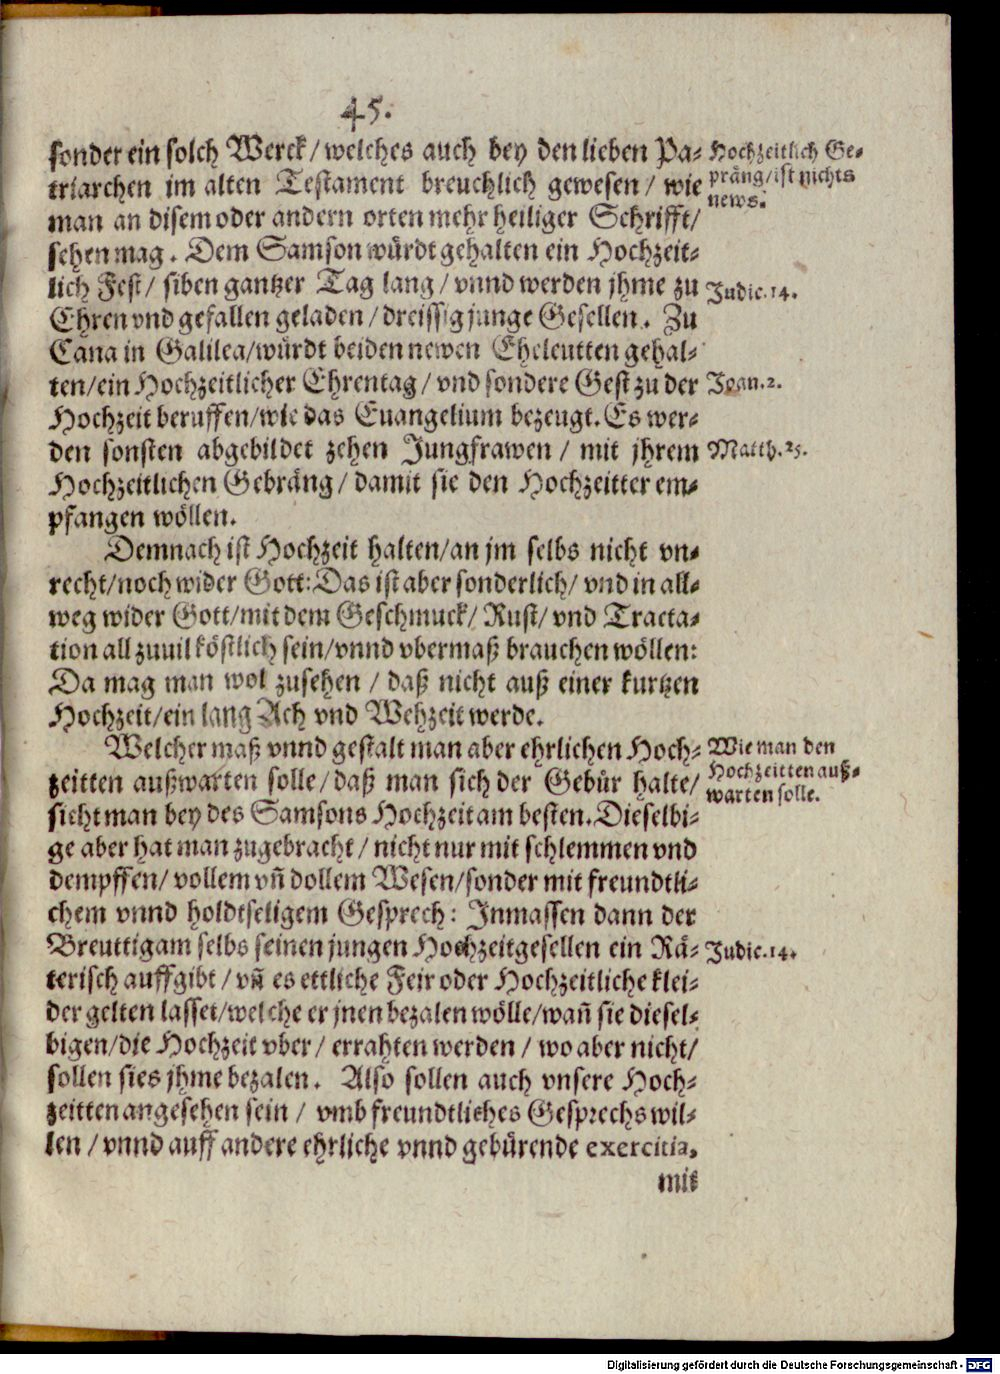 45.
sonder ein solch Werck/welches auch bey den lieben Pa-
triarchen im alten Testament breuchlich gewesen/ wie
man an disem oder andern orten mehr heiliger Schrifft/
sehen mag. Dem Samson würdt gehalten ein Hochzeit-
lich Fest/ siben gantzer Tag lang/ vnnd werden jhme zu
Ehren vnd gefallen geladen/ dreissig junge Gesellen. Zu
Cana in Galilea/würdt beiden newen Eheleutten gehal-
ten/ein Hochzeitlicher Ehrentag/ vnd sondere Gest zu der
Hochzeit beruffen/wie das Euangelium bezeugt. Es wer-
den sonsten abgebildet zehen Jungfrawen/ mit jhrem
Hochzeitlichen Gebräng/ damit sie den Hochzeitter em-
pfangen wöllen.
Demnach ist Hochzeit halten/an jm selbs nicht vn-
recht/noch wider Gott: Das ist aber sonderlich/ vnd in all-
weg wider Gott/mit dem Geschmuck/ Rust/ vnd Tracta-
tion all zuuil köstlich sein/vnnd vbermaß brauchen wöllen:
Da mag man wol zusehen/ daß nicht auß einer kurtzen
Hochzeit/ein lang Ach vnd Wehzeit werde.
Welcher maß vnnd gestalt man aber ehrlichen Hoch-
zeitten außwarten solle/daß man sich der Gebür halte/
sicht man bey des Samsons Hochzeit am besten. Dieselbi-
ge aber hat man zugebracht/ nicht nur mit schlemmen vnd
dempffen/ vollem vñ dollem Wesen/sonder mit freundtli-
chem vnnd holdtseligem Gesprech: Inmassen dann der
Breuttigam selbs seinen jungen Hochzeitgesellen ein Rä-
terisch auffgibt/ vñ es ettliche Feir oder Hochzeitliche klei-
der gelten lasset/welche er jnen bezalen wölle/wañ sie diesel-
bigen/die Hochzeit vber/ errahten werden/ wo aber nicht/
sollen sies jhme bezalen. Also sollen auch vnsere Hoch-
zeitten angesehen sein/ vmb freundtliches Gesprechs wil-
len/vnnd auff andere ehrliche vnnd gebürende exercitia.
mit
Hochzeitlich Ge-
präng/ist nichts
news.
Judic.14.
Joan.2.
Matth.25.
Wie man den
Hochzeitten auß-
warten solle.
Judic.14.
Digitalisierung gefördert durch die Deutsche Forschungsgemeinschaft - DFG